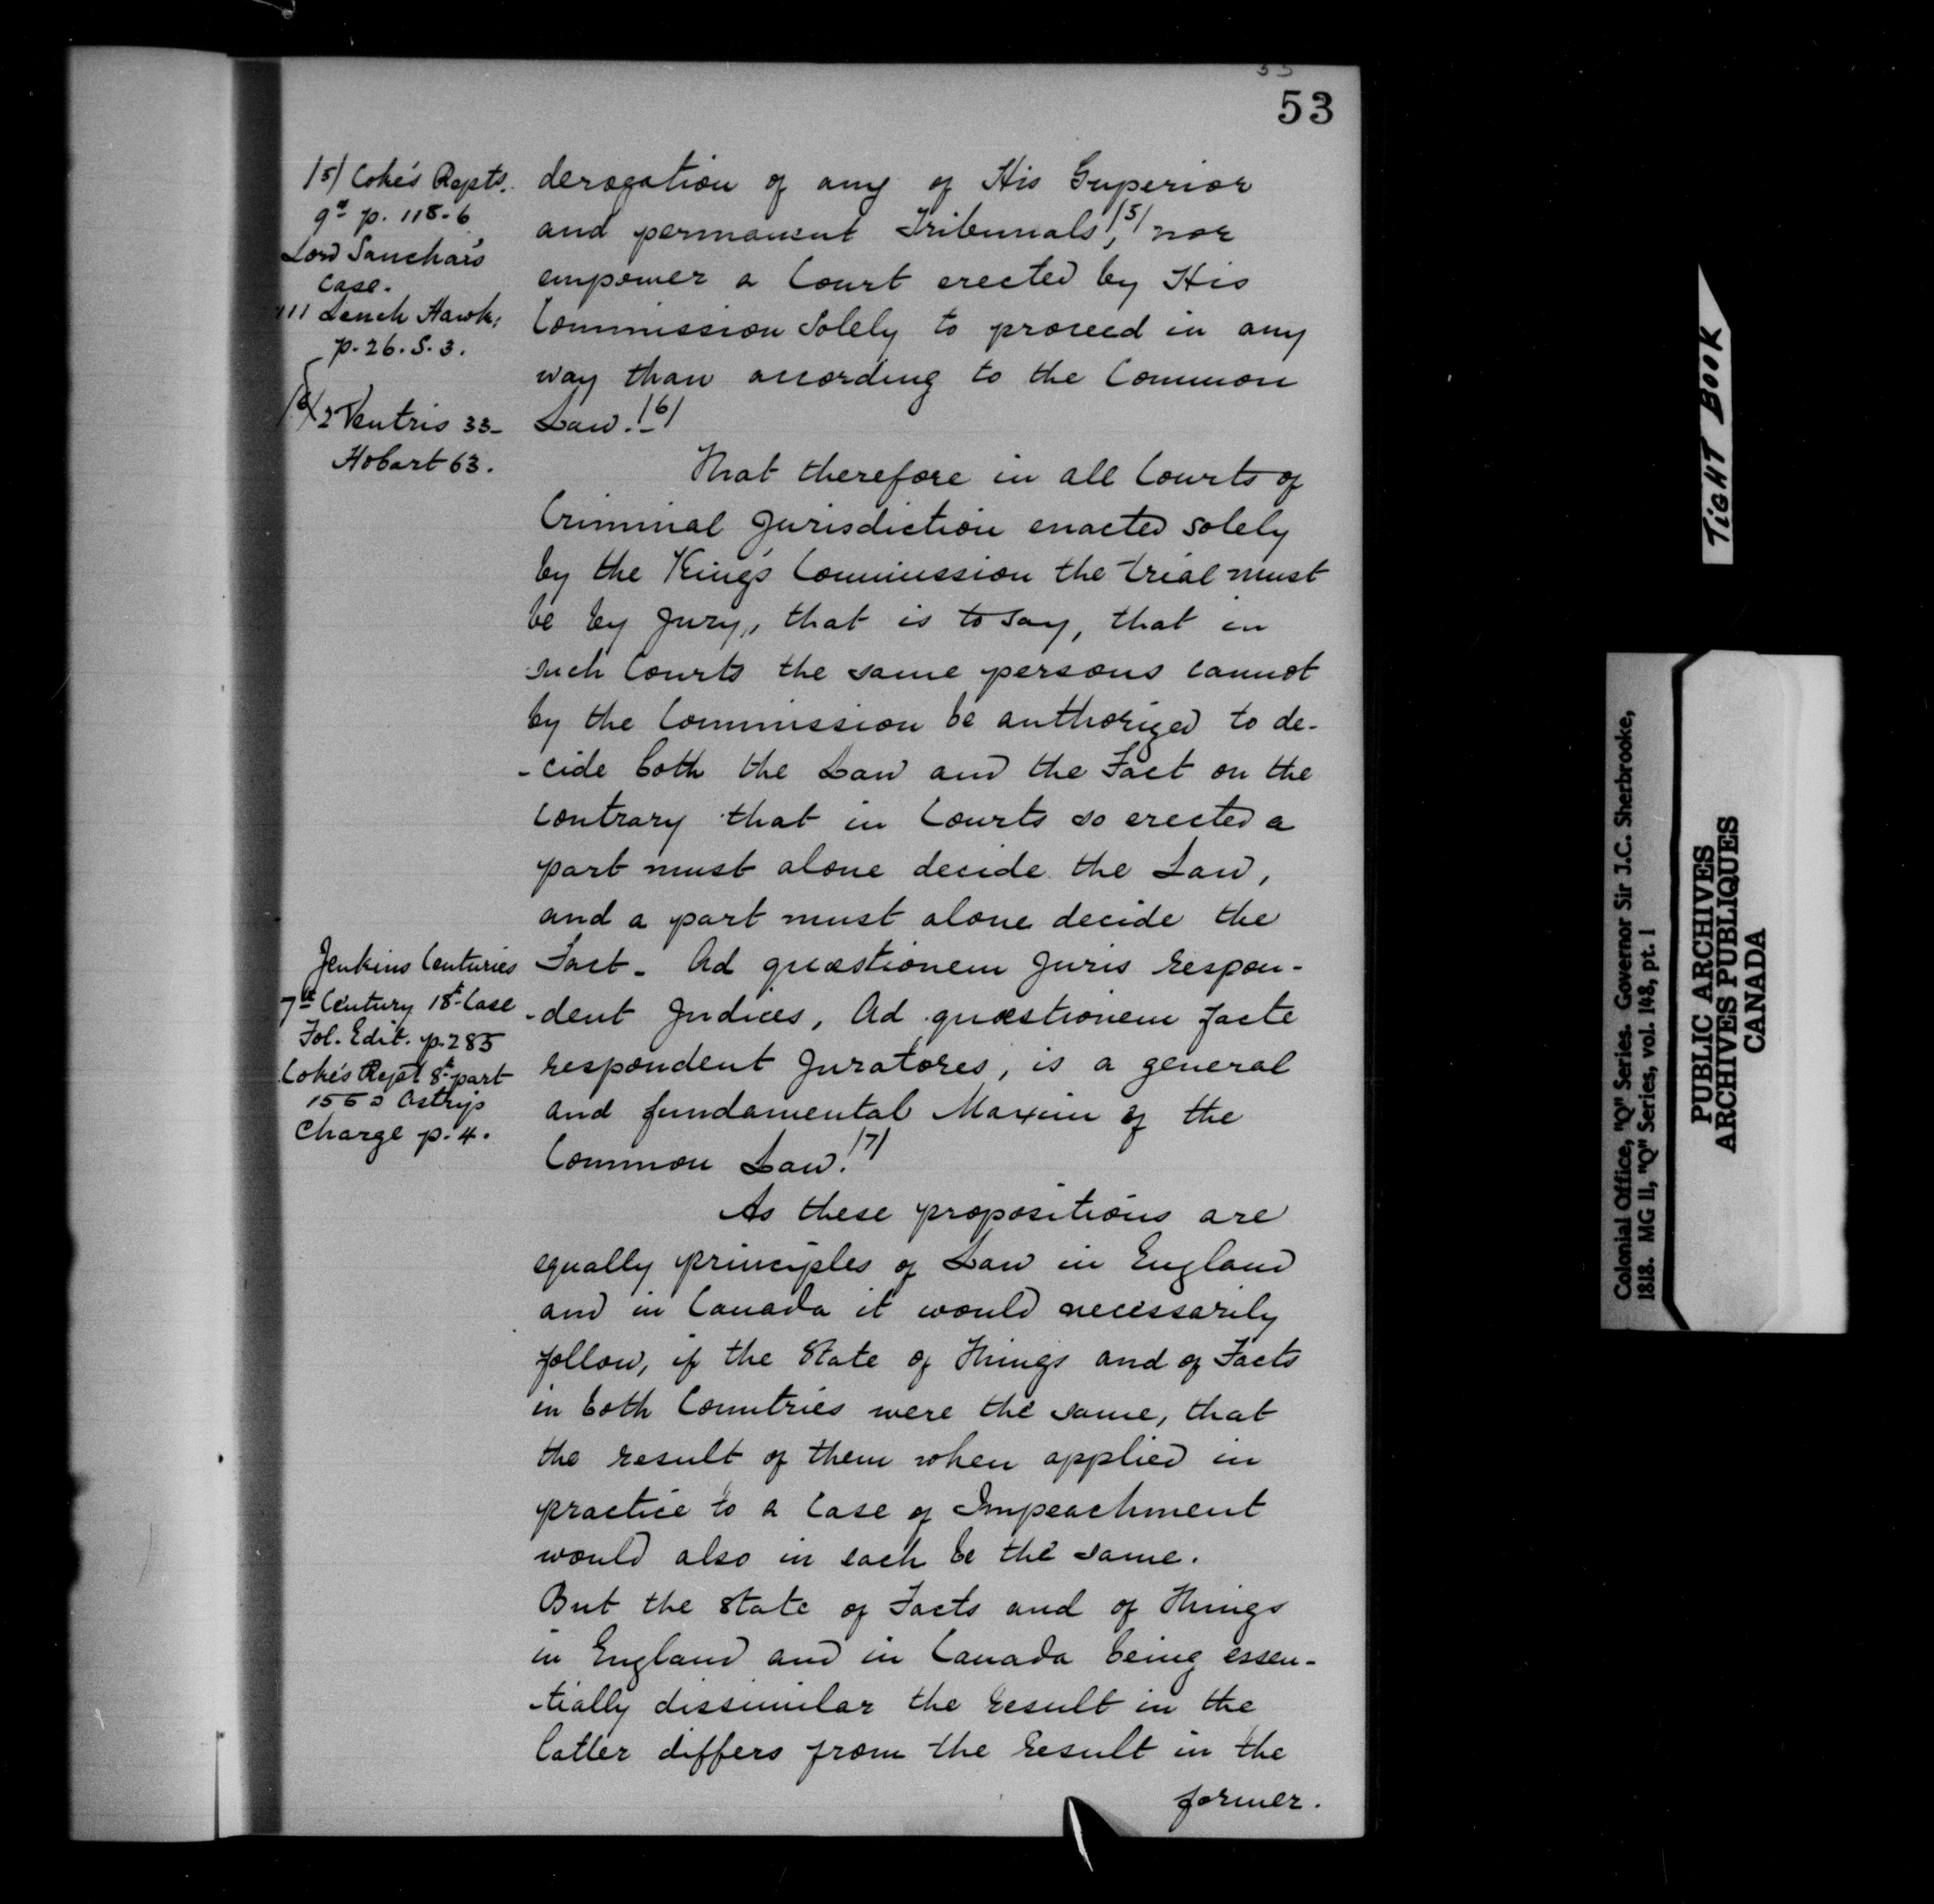 53
/5/ Coke's Repts.
9th p. 118-6
Lord Sanchar's
Case.
Leach Hawk;
p. 26. S. 3.
/6/ 2 Ventris 33-
Hobart 63.
derogation of any of His Superior
and permanent Tribunals, /5/ nor
empower a Court erected by His
Commission Solely to proceed in any
way than according to the Common
Law. /6/
That therefore in all Courts of
Criminal Jurisdiction enacted solely
by the King's Commission the trial must
be by Jury, that is to say, that in
such Courts the same persons cannot
by the Commission be authorized to de-
-cide both the Law and the Fact on the
contrary that in Courts so erected a
part must alone decide the Law,
and a part must alone decide the
Fact - Ad quæstionem Juris respon-
-dent Judices, Ad quæstionem facte
respondent Juratores, is a general
and fundamental Maxim of the
Common Law. /7/
Jenkins Centuries
7th Century 18th Case
Fol. Edit. p. 285
Coke's Rept 8th part
Charge p. 4.
As these propositions are
equally principles of Law in England
and in Canada it would necessarily
follow, if the State of Things and of Facts
in both Countries were the same, that
the result of them when applied in
practice to a Case of Impeachment
would also in each be the same.
But the state of Facts and of Things
in England and in Canada being essen-
-tially dissimilar the result in the
latter differs from the result in the
former.
TIGHT BOOK
Colonial Office, "Q" Series. Governor Sir J.C. Sherbrooke,
1818. MG 11, "Q" Series, vol. 148, pt. 1
PUBLIC ARCHIVES
ARCHIVES PUBLIQUES
CANADA